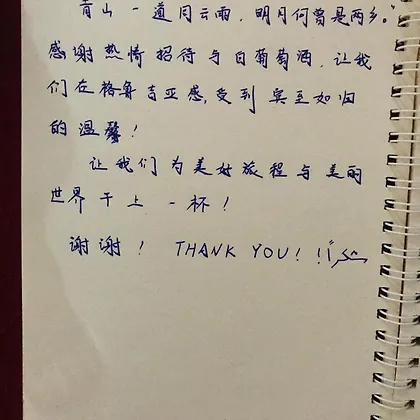 青山一道同云雨，明月何曾是两乡。
感谢热情招待与白葡萄酒，让我
们在格鲁吉亚感受到宾至如归
的温馨！
让我们为美好旅程与美丽
世界干上一杯！
谢谢！ THANK YOU! !شكراً